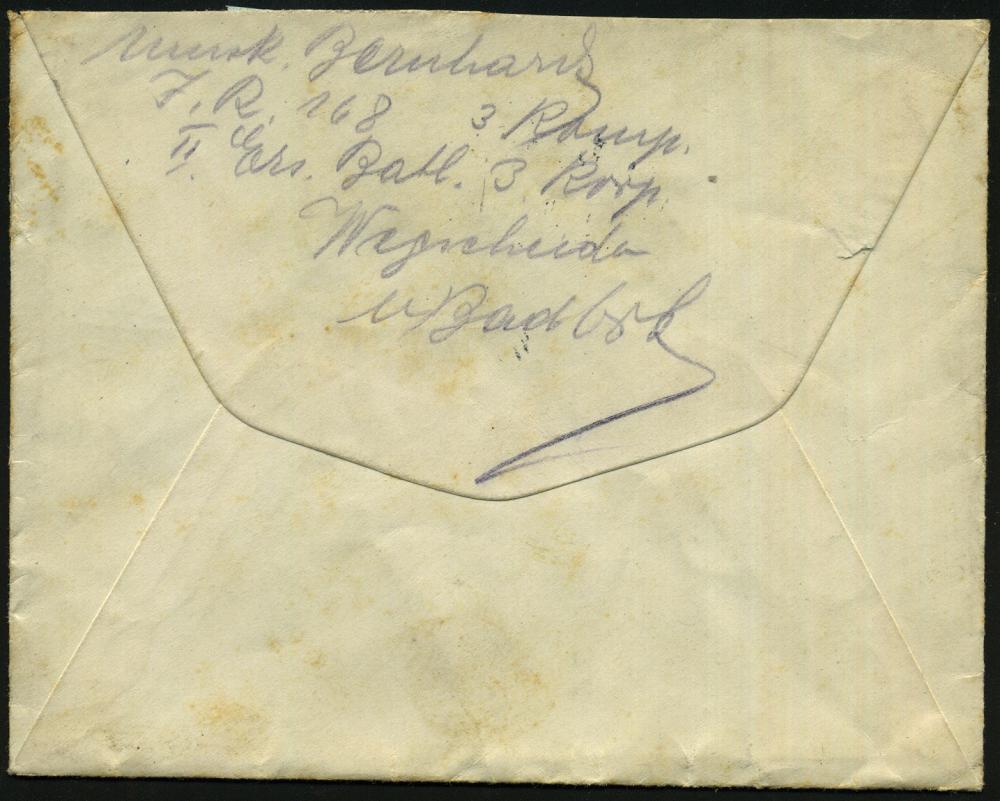 Musk. Bernhard
J. R. 168 3 Komp.
II. Ers. Batl. 3 Korp.
Wegscheide
Bad Orb